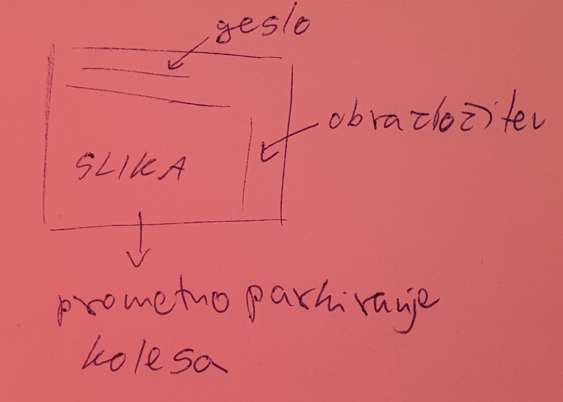 geslo
obrazložitev
SLIKA
prometno parkiranje
kolesa